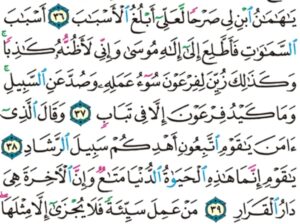 يَٰهَٰمَٰنُ ٱبۡنِ لِي صَرۡحٗا لَّعَلِّيٓ أَبۡلُغُ ٱلۡأَسۡبَٰبَ ٣٦ أَسۡبَٰبَ
ٱلسَّمَٰوَٰتِ فَأَطَّلِعَ إِلَىٰٓ إِلَٰهِ مُوسَىٰ وَإِنِّي لَأَظُنُّهُۥ كَٰذِبٗاۚ
وَكَذَٰلِكَ زُيِّنَ لِفِرۡعَوۡنَ سُوٓءُ عَمَلِهِۦ وَصُدَّ عَنِ ٱلسَّبِيلِۚ
وَمَا كَيۡدُ فِرۡعَوۡنَ إِلَّا فِي تَبَابٖ ٣٧ وَقَالَ ٱلَّذِيٓ
ءَامَنَ يَٰقَوۡمِ ٱتَّبِعُونِ أَهۡدِكُمۡ سَبِيلَ ٱلرَّشَادِ ٣٨
يَٰقَوۡمِ إِنَّمَا هَٰذِهِ ٱلۡحَيَوٰةُ ٱلدُّنۡيَا مَتَٰعٞ وَإِنَّ ٱلۡأٓخِرَةَ هِيَ
دَارُ ٱلۡقَرَارِ ٣٩ مَنۡ عَمِلَ سَيِّئَةٗ فَلَا يُجۡزَىٰٓ إِلَّا مِثۡلَهَاۖ